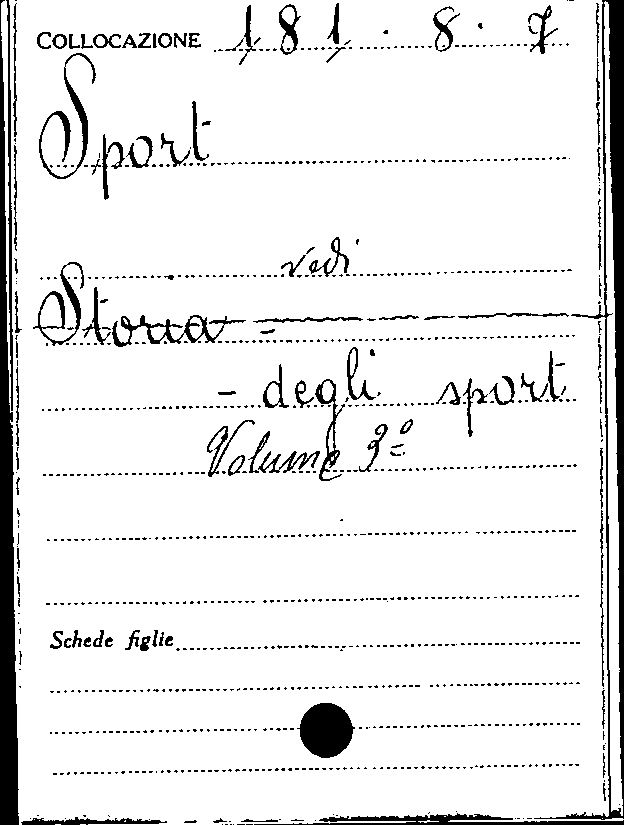 COLLOCAZIONE 181.8.7
Sport
vedi
Storia -
- degli sport
Volume 3º
Schede figlie